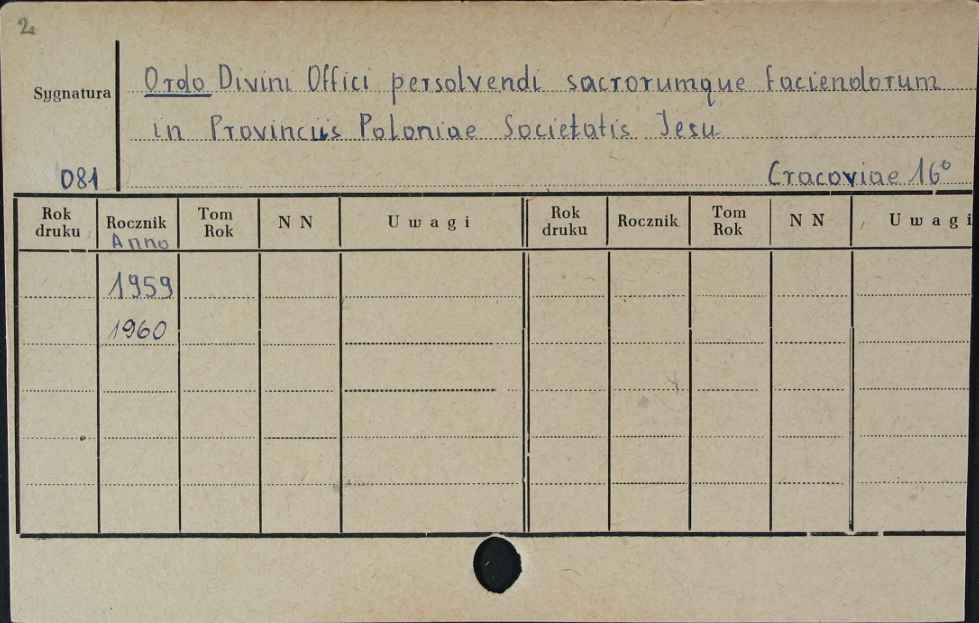 2.
Sygnatura
Ordo Divini Offici persolvendi sacrorumque faciendorum
in Provinciis Poloniae Societatis Jesu
081
Cracoviae 16°
Rok druku Rocznik Tom Rok N N Uwagi Rok druku Rocznik Tom Rok N N Uwagi
Anno
1959
1960